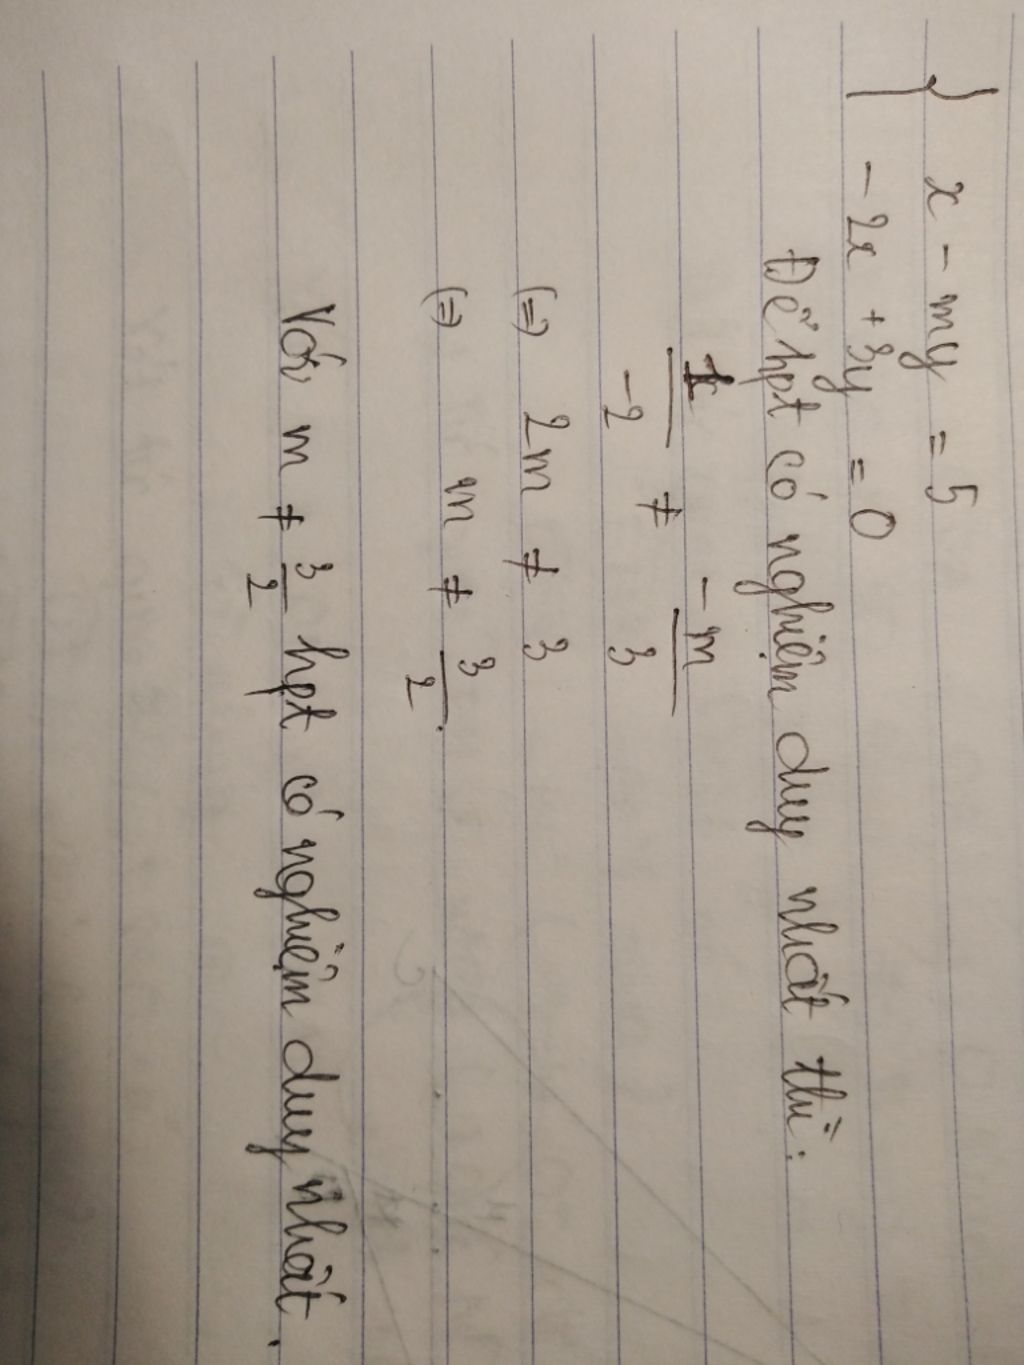 x - my = 5
- 2x + 3y = 0
Để hpt có nghiệm duy nhất thì:
1/-2 ≠ -m/3
(=) 2m ≠ 3
(=) m ≠ 3/2.
Với m ≠ 3/2 hpt có nghiệm duy nhất.